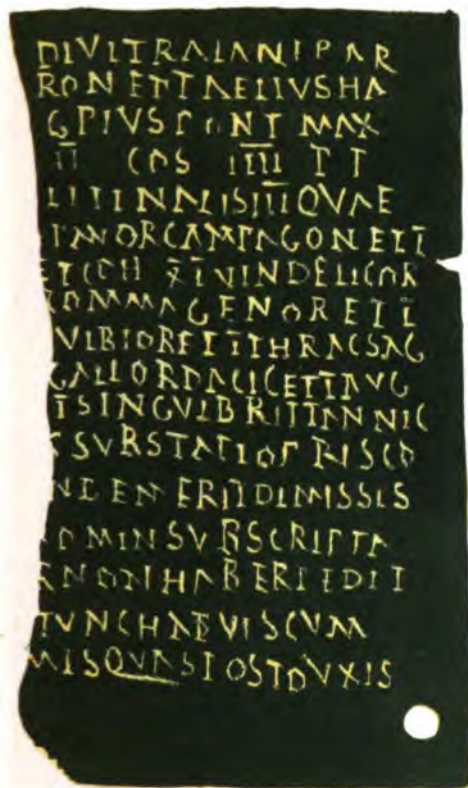 DIVI TRAIANI PAR
RON ET T AELIVS HA
G PIVS PONT MAX
II COS IIII TT
LITINALIS III QVAE
TANOR CAMPAGON ET I
ET COH XI VINDELICOR
COMMAGENOR ET I
VLBIOR ET I THRAC SAG
GALLOR DACIC ET I AVG
T SINGVL BRITTANNIC
T SVB STATIO PRISCO
NDEN ERIT DIMISSIS
OMIN SVBSCRIPTA
R NON HABER DEDIT
TVNC HABVIS CVM
MIS QVAS POST DVXIS